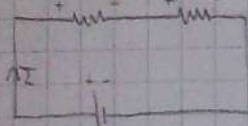 + - +
I
- -